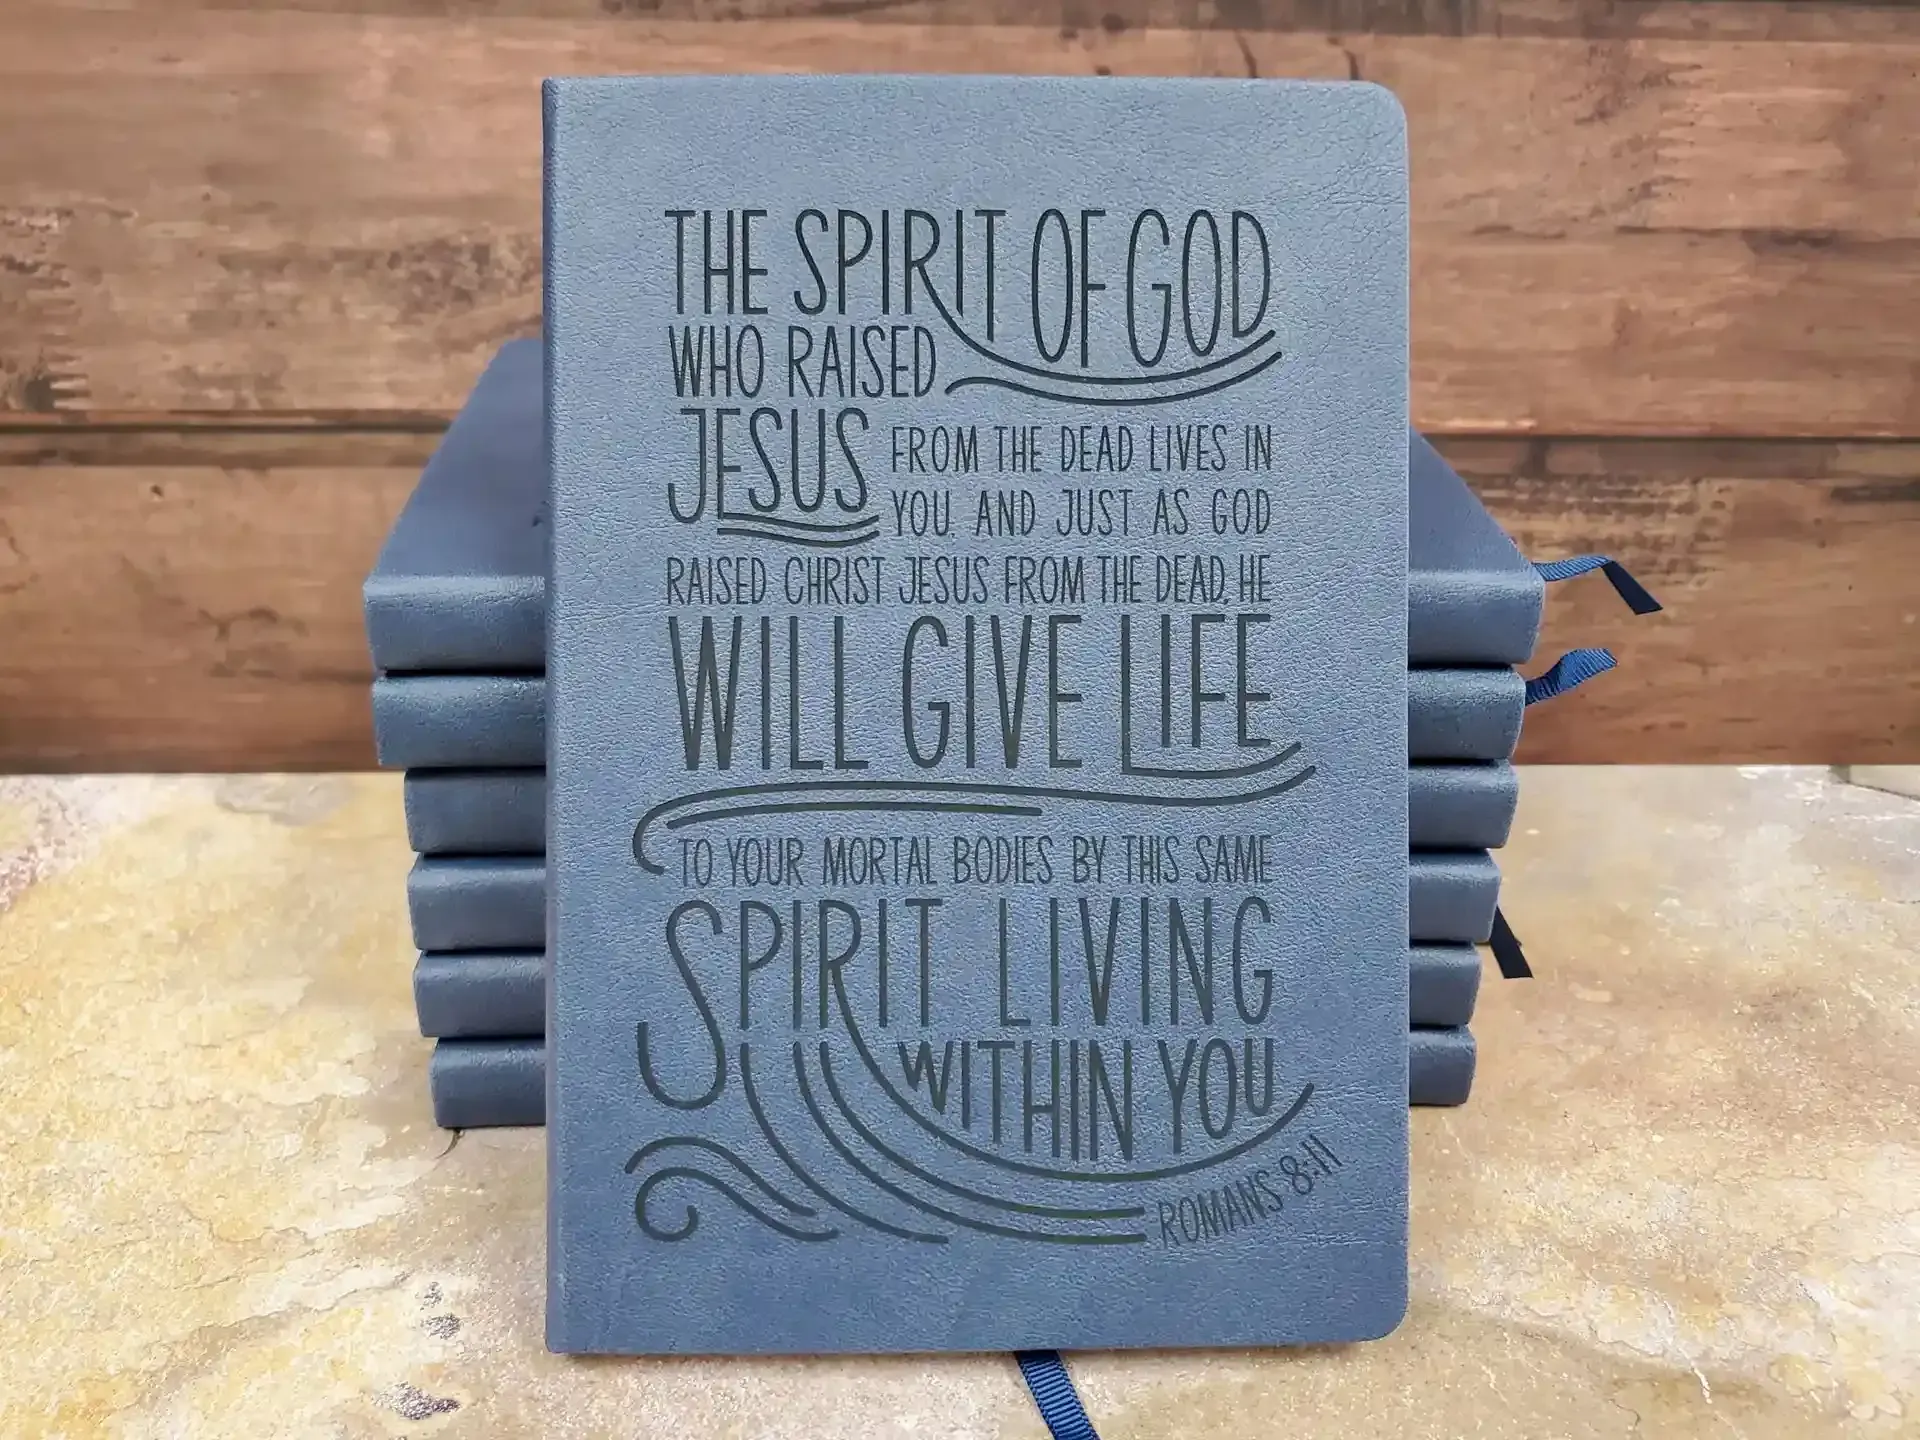 THE SPIRIT OF GOD
WHO RAISED
JESUS FROM THE DEAD LIVES IN
YOU. AND JUST AS GOD
RAISED CHRIST JESUS FROM THE DEAD, HE
WILL GIVE LIFE
TO YOUR MORTAL BODIES BY THIS SAME
SPIRIT LIVING
WITHIN YOU
ROMANS 8:11